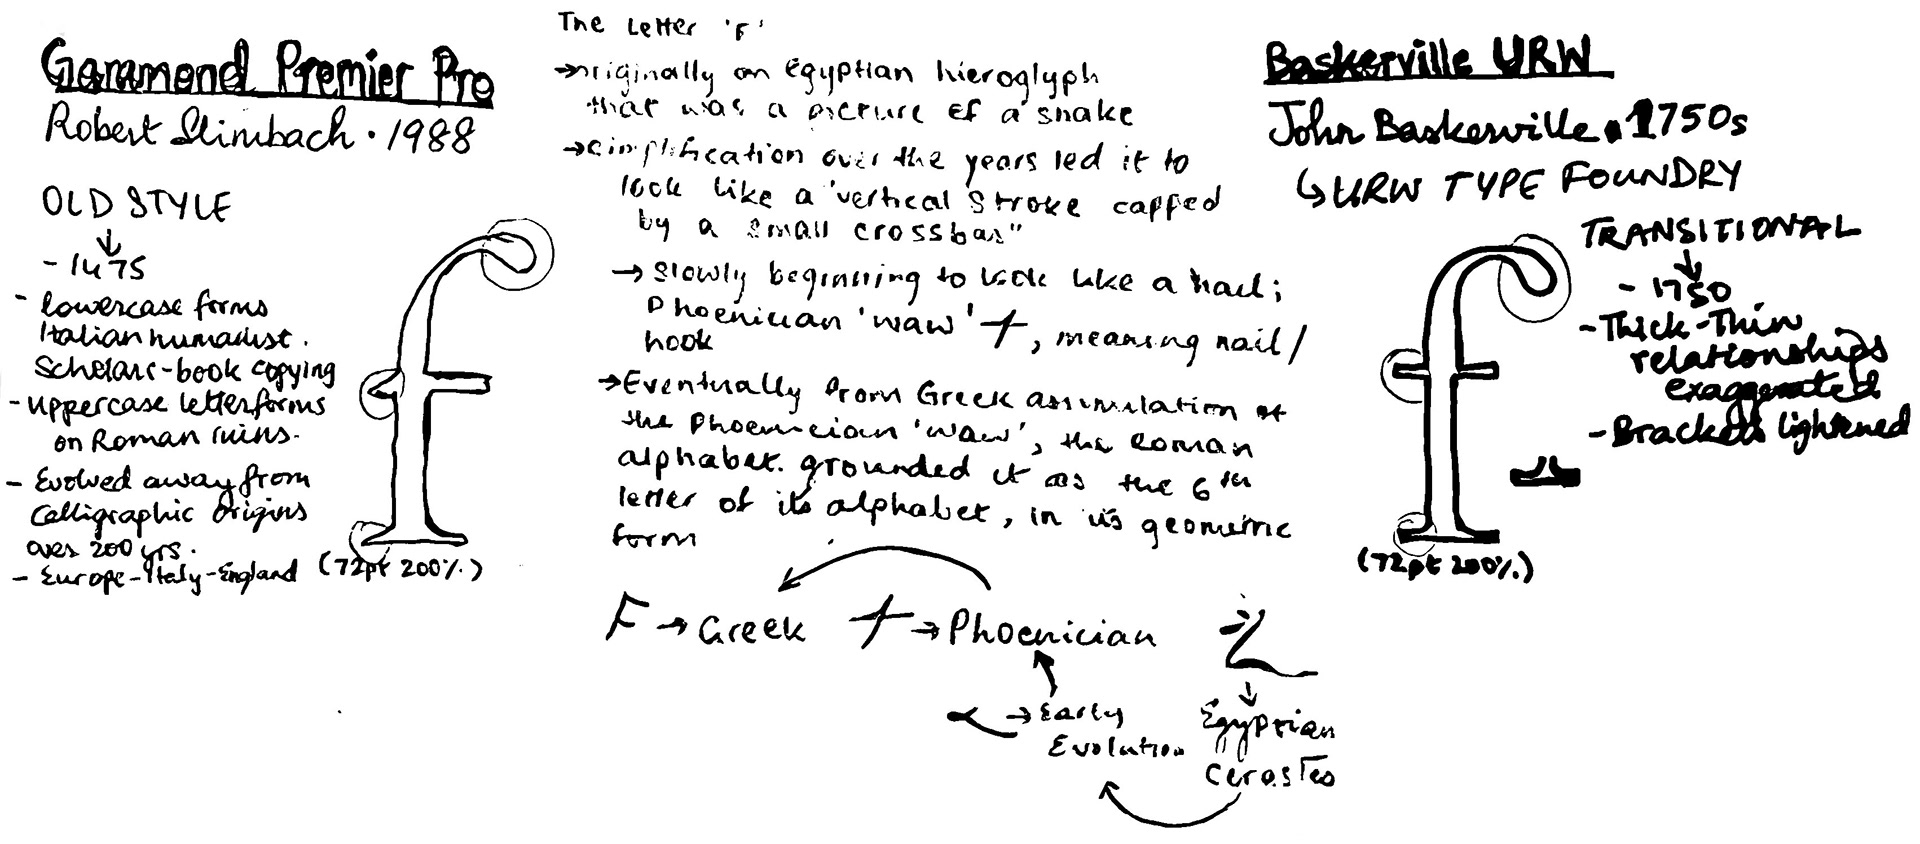 Garamond Premier Pro
Robert Slimbach · 1988
OLD STYLE
↓
- 1475
- lowercase forms
Italian humanist.
Scholars-book copying
- uppercase letterforms
on Roman ruins.
- Evolved away from
calligraphic origins
over 200 yrs.
- Europe-Italy-England
(72pt 200%)
The Letter 'F'
→originally an Egyptian hieroglyph
that was a picture of a snake
→simplification over the years led it to
look like a "vertical stroke capped
by a small crossbar"
→ Slowly beginning to look like a nail;
Phoenician 'waw' , meaning nail/
hook
→Eventually from Greek assimilation of
the Phoenician 'waw', the Roman
alphabet. grounded it as the 6th
letter of its alphabet, in its geometric
form
F → Greek → Phoenician
→ Early
Evolution
↓
Egyptian
Cerastes
Baskerville URW
John Baskerville. 1750s
↳URW TYPE FOUNDRY
TRANSITIONAL
↓
- 1750
- Thick-Thin
relationships
exaggerated
- Brackets lightened
f
f
(72pt 200%)